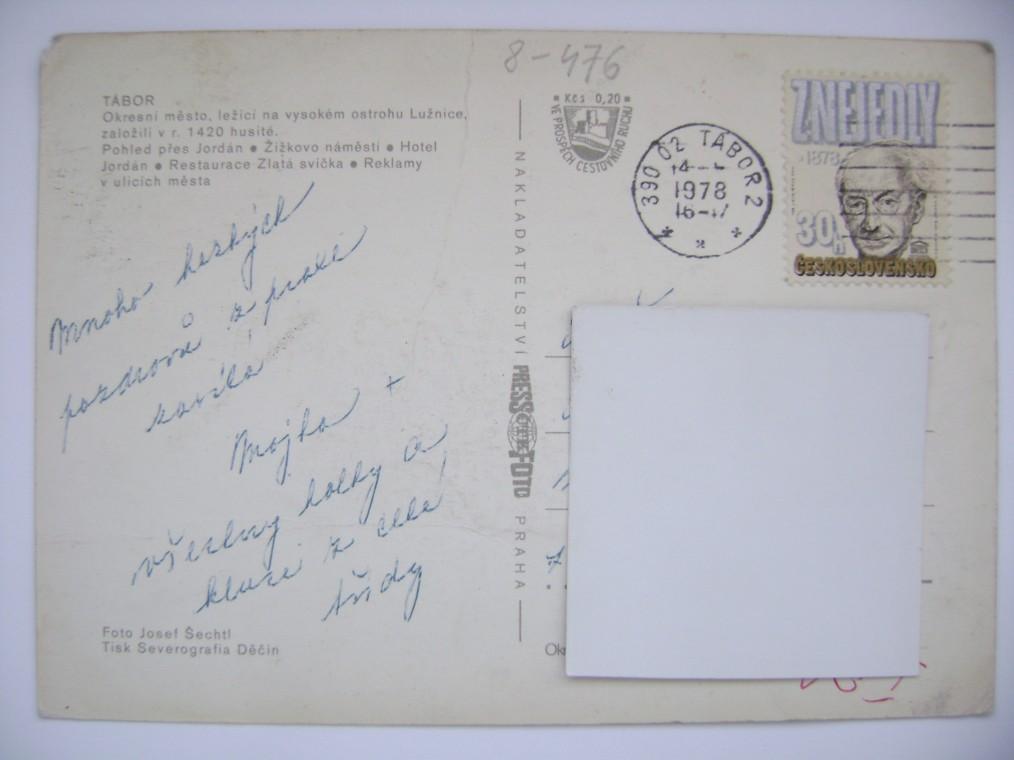 8-476
TÁBOR
Okresní město, ležící na vysokém ostrohu Lužnice,
založili v r. 1420 husité.
Pohled přes Jordán • Žižkovo náměstí • Hotel
Jordán • Restaurace Zlatá svíčka • Reklamy
v ulicích města
Mnoho hezkých
pozdravů z praxe
posílá
Majka +
všechny holky a
kluci z celé
třídy
Foto Josef Šechtl
Tisk Severografia Děčín
NAKLADATELSTVÍ PRESSFOTO PRAHA
Kčs 0,20
VE PROSPĚCH CESTOVNÍHO RUCHU
390 02 TÁBOR 2
1978
16-17
Z NEJEDLÝ
1878
30h
ČESKOSLOVENSKO